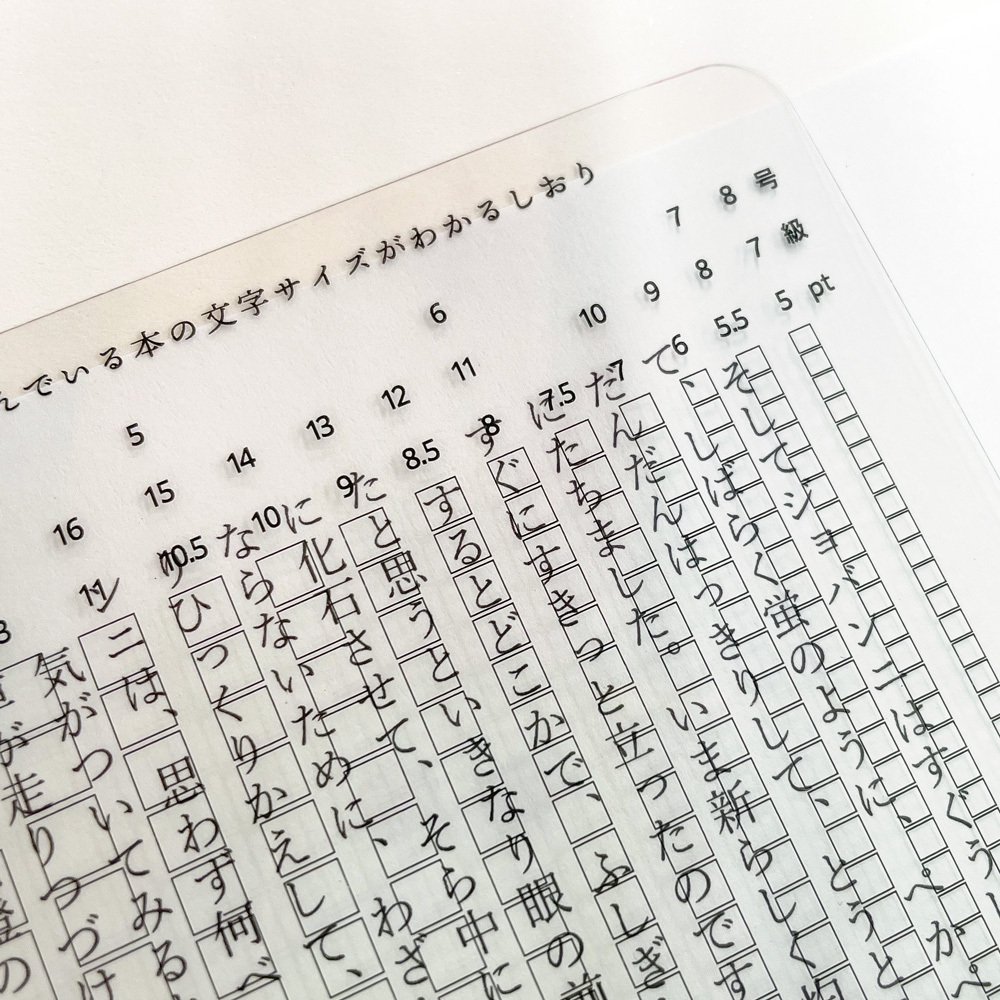 んでいる本の文字サイズがわかるしおり
号 8 7 6 5
級 7 8 9 10 11 12 13 14 15 16
pt 5 5.5 6 7 7.5 8 8.5 9 10 10.5 11
そしてジョバンニはすぐうし
て、しばらく蛍のように、ぺかぺ
だんだんはっきりして、とうと
にたちました。いま新らしく
すぐにすきっと立ったのです
するとどこかで、ふしぎ
たと思うといきなり眼の前
に化石させて、そら中に
ならないために、わざ
りひっくりかえして、
ンニは、思わず何べ
気がついてみる
が走りつづけ